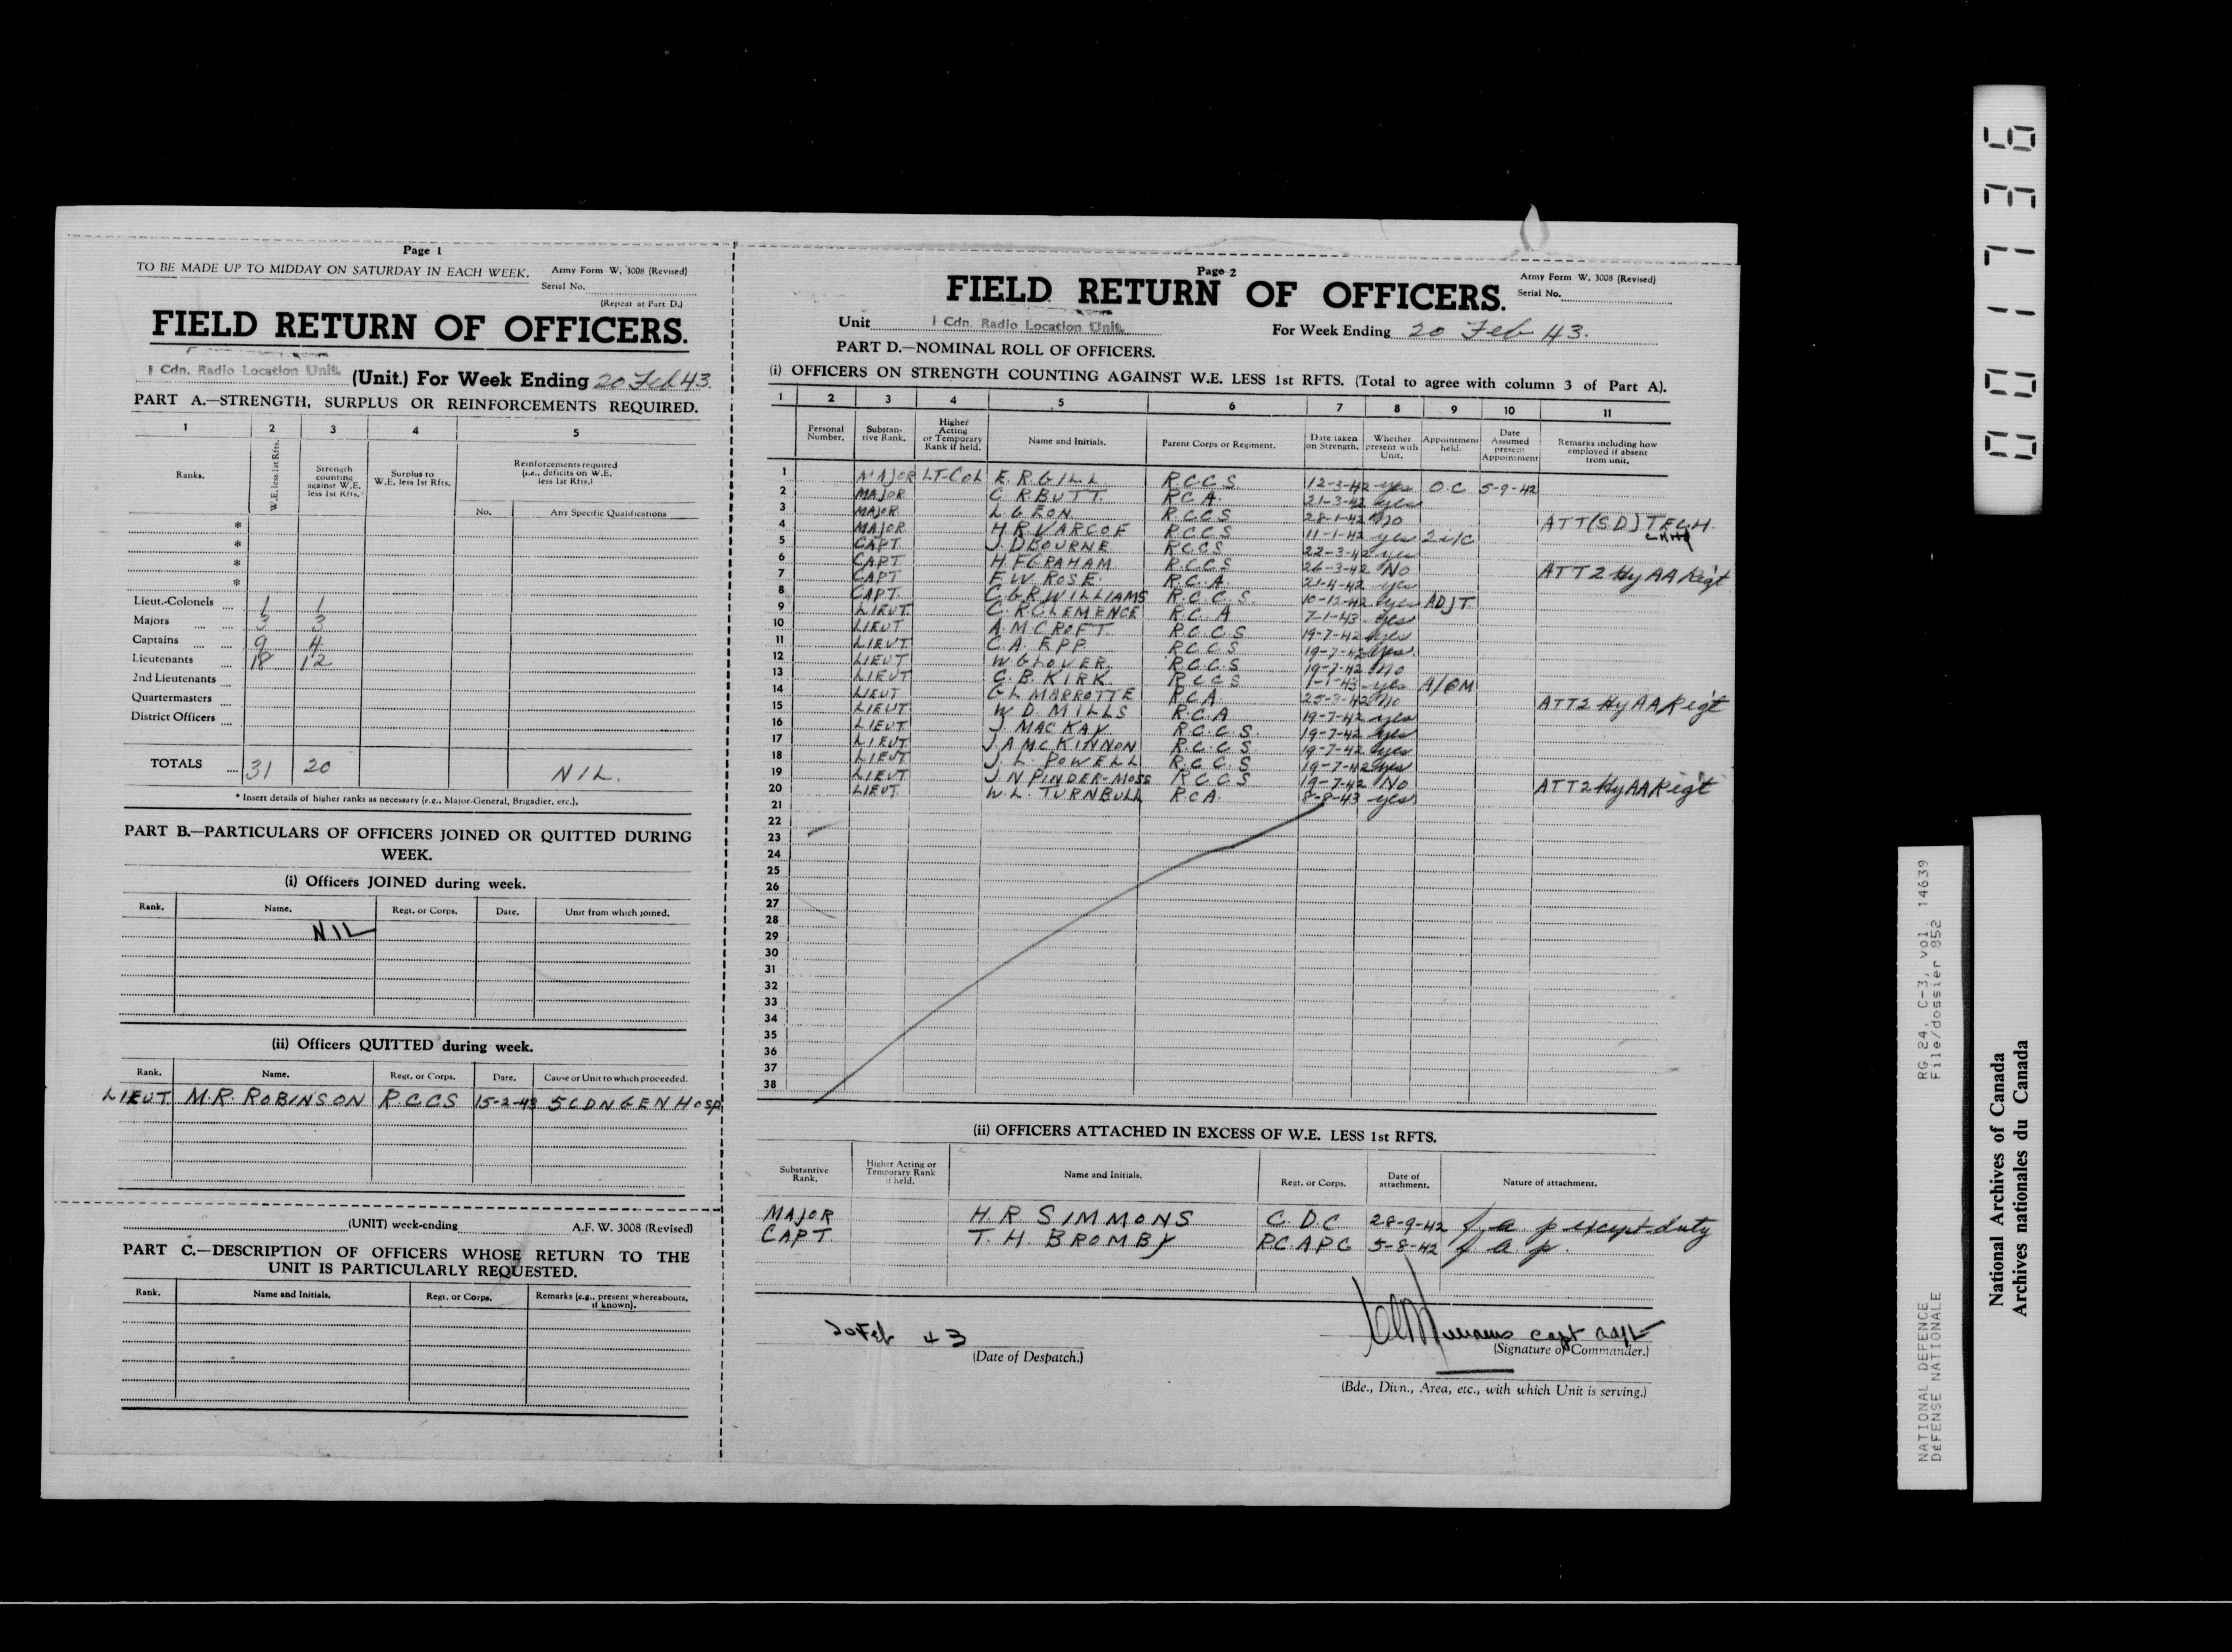 Page 1
TO BE MADE UP TO MIDDAY ON SATURDAY IN EACH WEEK. Army Form W. 3008 (Revised)
Serial No.
(Repeat at Part D.)
FIELD RETURN OF OFFICERS.
1 Cdn. Radio Location Unit. (Unit.) For Week Ending 20 Feb 43.
PART A.—STRENGTH, SURPLUS OR REINFORCEMENTS REQUIRED.
1 2 3 4 5
Ranks. W.E. less 1st Rfts. Strength counting against W.E. less 1st Rfts. Surplus to W.E. less 1st Rfts. Reinforcements required (i.e., deficits on W.E. less 1st Rfts.)
No. Any Specific Qualifications
*
*
*
*
Lieut.-Colonels 1 1
Majors 3 3
Captains 9 4
Lieutenants 18 12
2nd Lieutenants
Quartermasters
District Officers
TOTALS 31 20 NIL.
* Insert details of higher ranks as necessary (e.g., Major-General, Brigadier, etc.).
PART B.—PARTICULARS OF OFFICERS JOINED OR QUITTED DURING
WEEK.
(i) Officers JOINED during week.
Rank. Name. Regt. or Corps. Date. Unit from which joined.
NIL
(ii) Officers QUITTED during week.
Rank. Name. Regt. or Corps. Date. Cause or Unit to which proceeded.
LIEUT M.R. ROBINSON R.C.C.S 15-2-43 5 CDN GEN HOSP
(UNIT) week-ending A.F. W. 3008 (Revised)
PART C.—DESCRIPTION OF OFFICERS WHOSE RETURN TO THE
UNIT IS PARTICULARLY REQUESTED.
Rank. Name and Initials. Regt. or Corps. Remarks (e.g., present whereabouts, if known).
Page 2
Army Form W. 3008 (Revised)
FIELD RETURN OF OFFICERS. Serial No.
Unit 1 Cdn. Radio Location Unit. For Week Ending 20 Feb 43.
PART D.—NOMINAL ROLL OF OFFICERS.
(i) OFFICERS ON STRENGTH COUNTING AGAINST W.E. LESS 1st RFTS. (Total to agree with column 3 of Part A).
1 2 3 4 5 6 7 8 9 10 11
Personal Number. Substan-tive Rank. Higher Acting or Temporary Rank if held. Name and Initials. Parent Corps or Regiment. Date taken on Strength. Whether present with Unit. Appointment held. Date Assumed present Appointment Remarks including how employed if absent from unit.
1 MAJOR LT-COL E.R GILL R.C.C.S. 12-3-42 yes O.C 5-9-42
2 MAJOR C R BUTT R.C.A. 21-3-42 yes
3 MAJOR L G EON R.C.C.S 28-1-42 No ATT (S.D) TECH.
4 MAJOR H R VARCOE R.C.C.S 11-1-42 yes 2 i/c
5 CAPT J. D BOURNE R.C.C.S 22-3-42 yes
6 CAPT H. F GRAHAM R.C.C.S 26-3-42 No ATT 2 Hy AA Regt
7 CAPT E. W. ROSE R.C.A. 21-4-42 yes
8 CAPT. C. G R WILLIAMS R.C.C.S. 10-12-42 yes ADJT
9 LIEUT C. R. CLEMENCE R.C.A 7-1-43 yes
10 LIEUT A. M CROFT R.C.C.S 19-7-42 yes
11 LIEUT C. A. EPP R.C.C.S 19-7-42 yes
12 LIEUT W GLOVER R.C.C.S 19-7-42 No
13 LIEUT C. B. KIRK R.C.C.S 1-1-43 yes A/QM
14 LIEUT G L MARROTTE R.C.A 25-3-42 No ATT 2 Hy AA Regt
15 LIEUT W D. MILLS R.C.A 19-7-42 yes
16 LIEUT J. MACKAY R.C.C.S. 19-7-42 yes
17 LIEUT J. A MCKINNON R.C.C.S 19-7-42 yes
18 LIEUT J. L. POWELL R.C.C.S 19-7-42 yes
19 LIEUT J. N PINDER-MOSS R.C.C.S 19-7-42 No ATT 2 Hy AA Regt
20 LIEUT W. L. TURNBULL R.C.A. 8-8-43 yes
21
22
23
24
25
26
27
28
29
30
31
32
33
34
35
36
37
38
(ii) OFFICERS ATTACHED IN EXCESS OF W.E. LESS 1st RFTS.
Substantive Rank. Higher Acting or Temporary Rank if held. Name and Initials. Regt. or Corps. Date of attachment. Nature of attachment.
MAJOR H. R SIMMONS C. D. C 28-9-42 f a p except duty
CAPT T. H. BROMBY R.C.A.P.C 5-8-42 f a p.
20 Feb 43 Williams Capt Adjt
(Date of Despatch.) (Signature of Commander.)
(Bde., Divn., Area, etc., with which Unit is serving.)
001736
RG 24, C-3, vol. 14639
File/dossier 852
NATIONAL DEFENCE
DÉFENSE NATIONALE
National Archives of Canada
Archives nationales du Canada